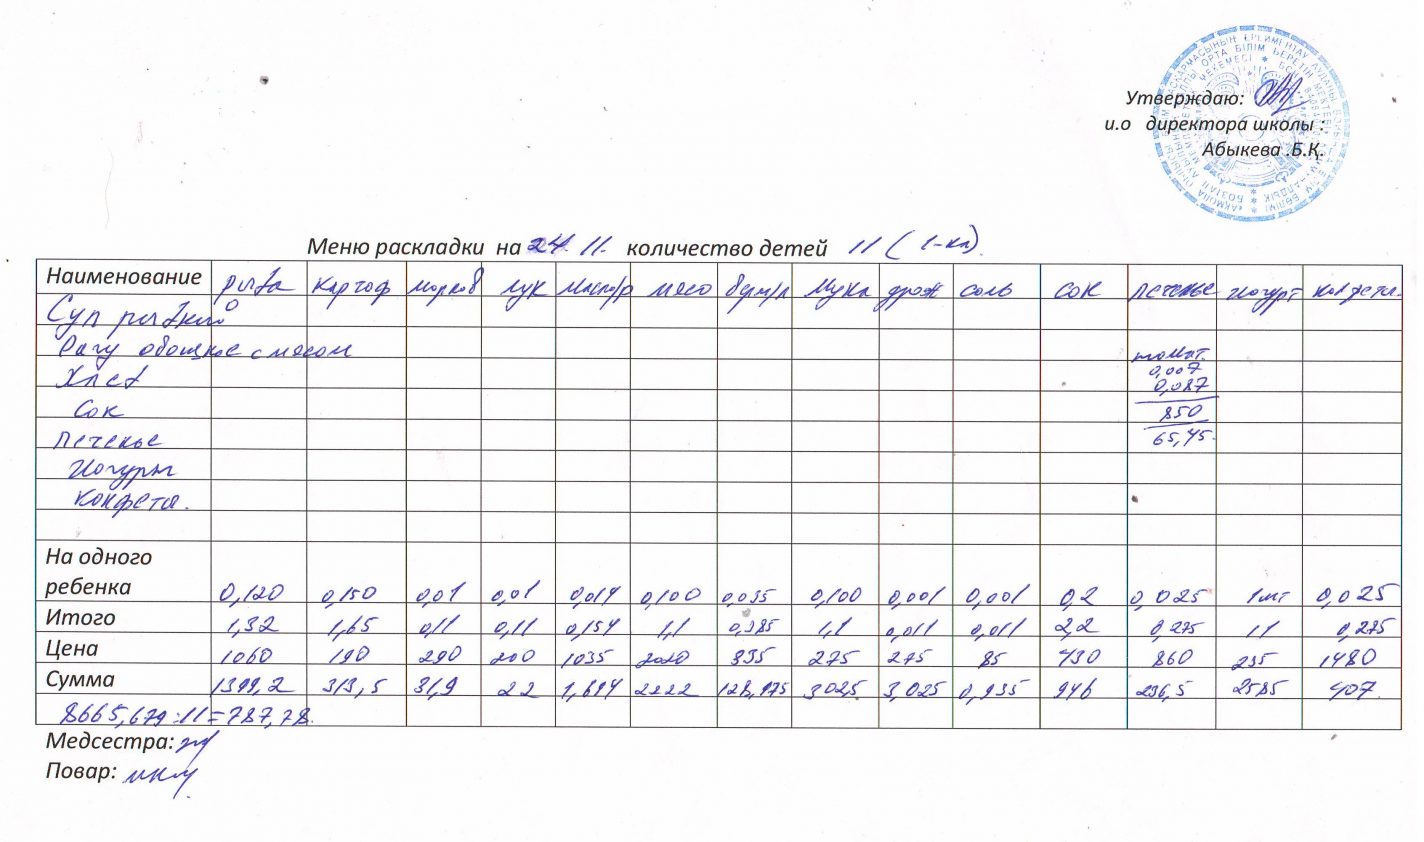 Утверждаю:
и.о директора школы :
Абыкева .Б.Қ.
Меню раскладки на 24. 11. количество детей 11 ( 1-кл)
Наименование рыба картоф морков лук масло/р мясо верм/л мука дрож соль сок печенье йогурт конфета.
Суп рыбный
Рагу овощное с мясом
томат.
0,007
Хлеб 0,087
Сок 850
Печенье 65,45
Йогурт
Конфета.
На одного
ребенка 0,120 0,150 0,01 0,01 0,014 0,100 0,035 0,100 0,001 0,001 0,2 0,025 1шт 0,025
Итого 1,32 1,65 0,11 0,11 0,154 1,1 0,385 1,1 0,011 0,011 2,2 0,275 11 0,275
Цена 1060 190 290 200 1035 2020 335 275 275 85 430 860 235 1480
Сумма 1399,2 313,5 31,9 22 2222 128,975 302,5 3,025 0,935 946 236,5 2585 407
8665,679:11=787,78.
Медсестра:
Повар: